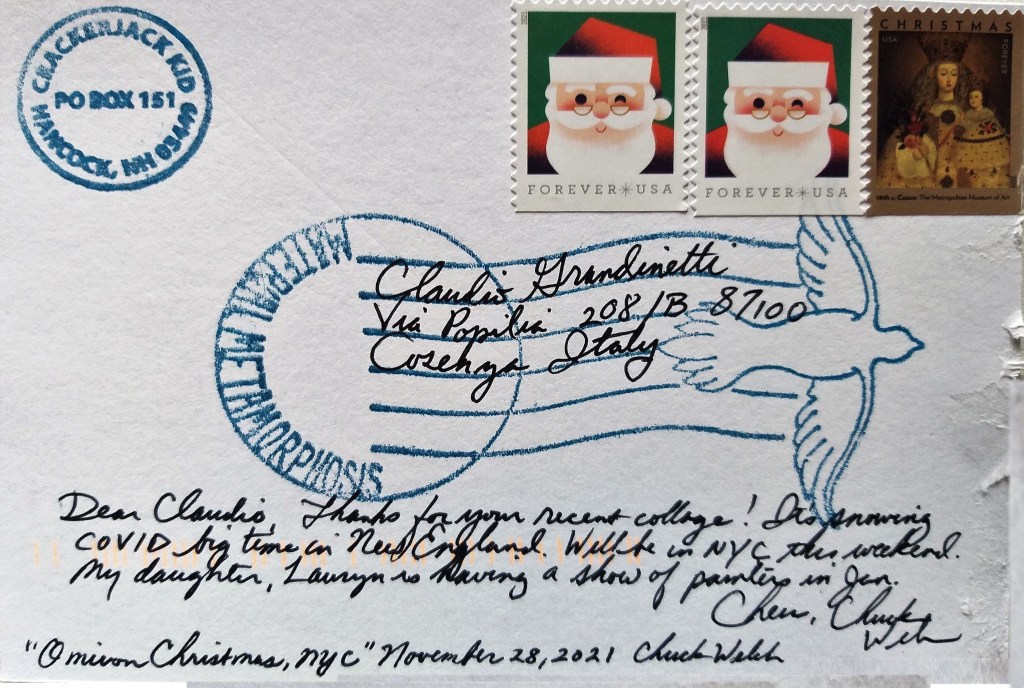 CRACKERJACK KID
PO BOX 151
HANCOCK, NH 03449
FOREVER USA
FOREVER USA
CHRISTMAS
USA
FOREVER
18th c. Cuzco The Metropolitan Museum of Art
MATERIAL METAMORPHOSIS
Claudio Grandinetti
Via Popilia 208/B 87100
Cosenza Italy
Dear Claudio, Thanks for your recent collage! It's snowing
COVID big time in New England. Will be in NYC this weekend.
My daughter, Lauryn is having a show of painters in Jan.
Cheers, Chuck
Welch
"Omicron Christmas, NYC" November 28, 2021 Chuck Welch